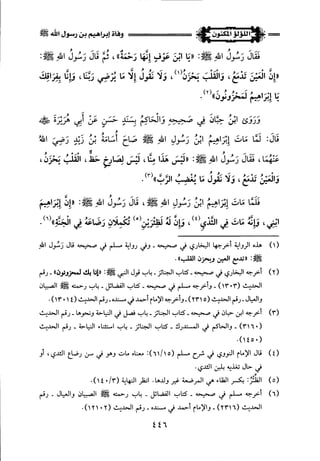 اللؤلؤ المكنون
وفاة إبراهيم بن رسول الله ﷺ
فَقَالَ رَسُولُ اللهِ ﷺ: «يَا ابْنَ عَوْفٍ إِنَّهَا رَحْمَةٌ»، ثُمَّ قَالَ رَسُولُ اللهِ ﷺ:
«إِنَّ الْعَيْنَ تَدْمَعُ، وَالْقَلْبَ يَحْزَنُ(١)، وَلَا نَقُولُ إِلَّا مَا يُرْضِي رَبَّنَا، وَإِنَّا بِفِرَاقِكَ
يَا إِبْرَاهِيمُ لَمَحْزُونُونَ»(٢).
وَرَوَى ابْنُ حِبَّانَ فِي صَحِيحِهِ وَالْحَاكِمُ بِسَنَدٍ حَسَنٍ عَنْ أَبِي هُرَيْرَةَ ﵁
قَالَ: لَمَّا مَاتَ إِبْرَاهِيمُ ابْنُ رَسُولِ اللهِ ﷺ صَاحَ أُسَامَةُ بْنُ زَيْدٍ رَضِيَ اللهُ
عَنْهُمَا، فَقَالَ رَسُولُ اللهِ ﷺ: «لَيْسَ هَذَا مِنَّا، لَيْسَ لِصَارِخٍ حَظٌّ، الْقَلْبُ يَحْزَنُ،
وَالْعَيْنُ تَدْمَعُ، وَلَا نَقُولُ مَا يُغْضِبُ الرَّبَّ»(٣).
فَلَمَّا مَاتَ إِبْرَاهِيمُ ابْنُ رَسُولِ اللهِ ﷺ، قَالَ رَسُولُ اللهِ ﷺ: «إِنَّ إِبْرَاهِيمَ
ابْنِي، وَإِنَّهُ مَاتَ فِي الثَّدْيِ(٤)، وَإِنَّ لَهُ لَظِئْرَيْنِ(٥) تُكَمِّلَانِ رَضَاعَهُ فِي الْجَنَّةِ»(٦).
(١) هذه الرواية أخرجها البخاري في صحيحه ـ وفي رواية مسلم في صحيحه قال رسول الله
ﷺ: «تدمع العين ويحزن القلب».
(٢) أخرجه البخاري في صحيحه ـ كتاب الجنائز ـ باب قول النبي ﷺ: «إنا بك لمحزونون» ـ رقم
الحديث (١٣٠٣) ـ وأخرجه مسلم في صحيحه ـ كتاب الفضائل ـ باب رحمته ﷺ الصبيان
والعيال ـ رقم الحديث (٢٣١٥) وأخرجه الإمام أحمد في مسنده ـ رقم الحديث (١٣٠١٤).
(٣) أخرجه ابن حبان في صحيحه ـ كتاب الجنائز ـ باب فصل في النياحة ونحوها ـ رقم الحديث
(٣١٦٠) ـ والحاكم في المستدرك ـ كتاب الجنائز ـ باب استثناء النياحة ـ رقم الحديث
(١٤٥٠).
(٤) قال الإمام النووي في شرح مسلم (٦١/١٥): معناه مات وهو في سن رضاع الثدي، أو
في حال تغذيه بلبن الثدي.
(٥) الظِّئْرُ: بكسر الظاء هي المرضعة غير ولدها. انظر النهاية (١٤٠/٣).
(٦) أخرجه مسلم في صحيحه ـ كتاب الفضائل ـ باب رحمته ﷺ الصبيان والعيال ـ رقم
الحديث (٢٣١٦) ـ والإمام أحمد في مسنده ـ رقم الحديث (١٢١٠٢).
٤٤٦